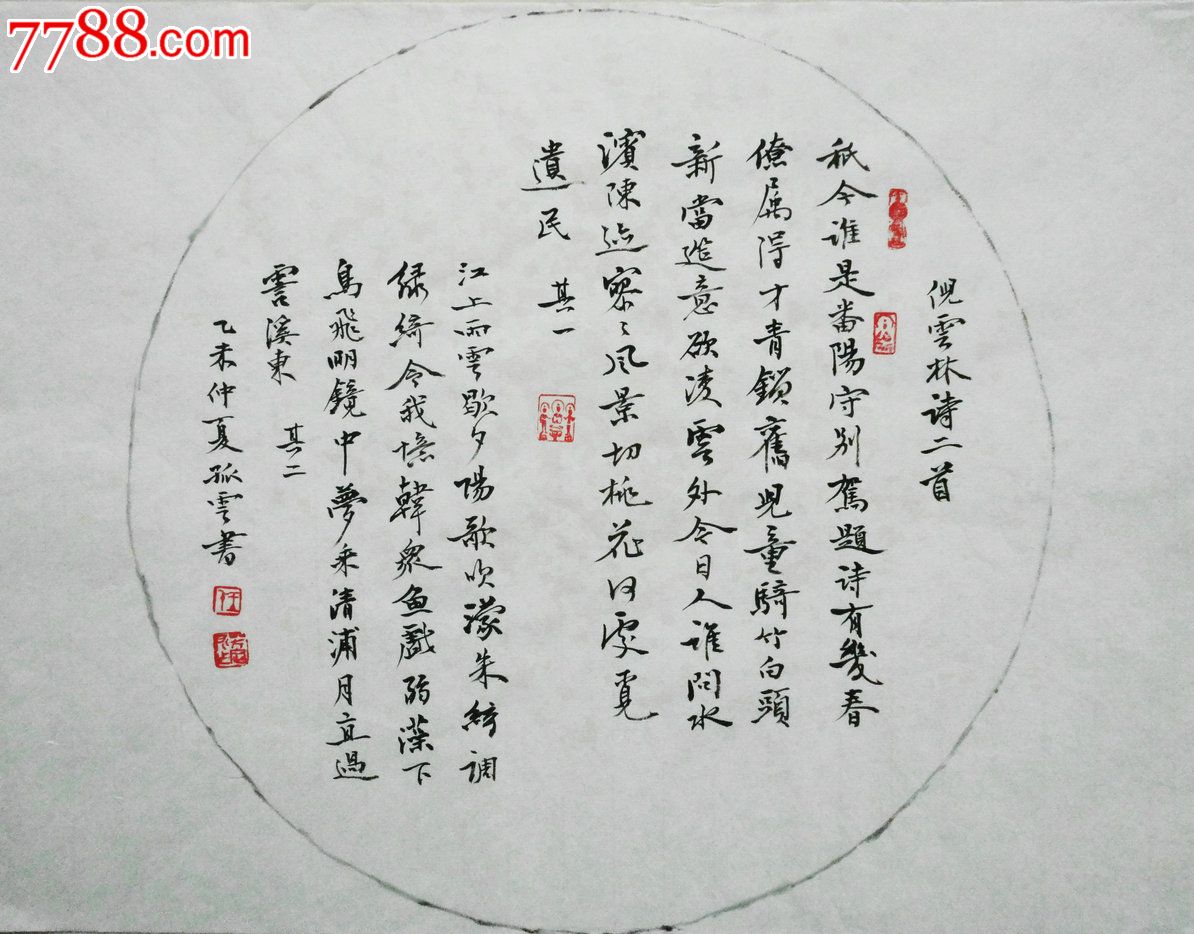 7788.com
倪雲林诗二首
秖今谁是番陽守别駕題诗有幾春
僚属得才青鎖舊児童騎竹白頭
新當造意欲凌雲外今日人谁問水
濱陳迹寥々風景切桃花何處覓
遺民 其一
江上雨雲歇夕陽歌吹濛朱絃調
緑綺令我憶韓衆魚戲弱藻下
鳥飛明镜中夢乘清浦月直過
霅溪東 其二
乙未仲夏孤雲書